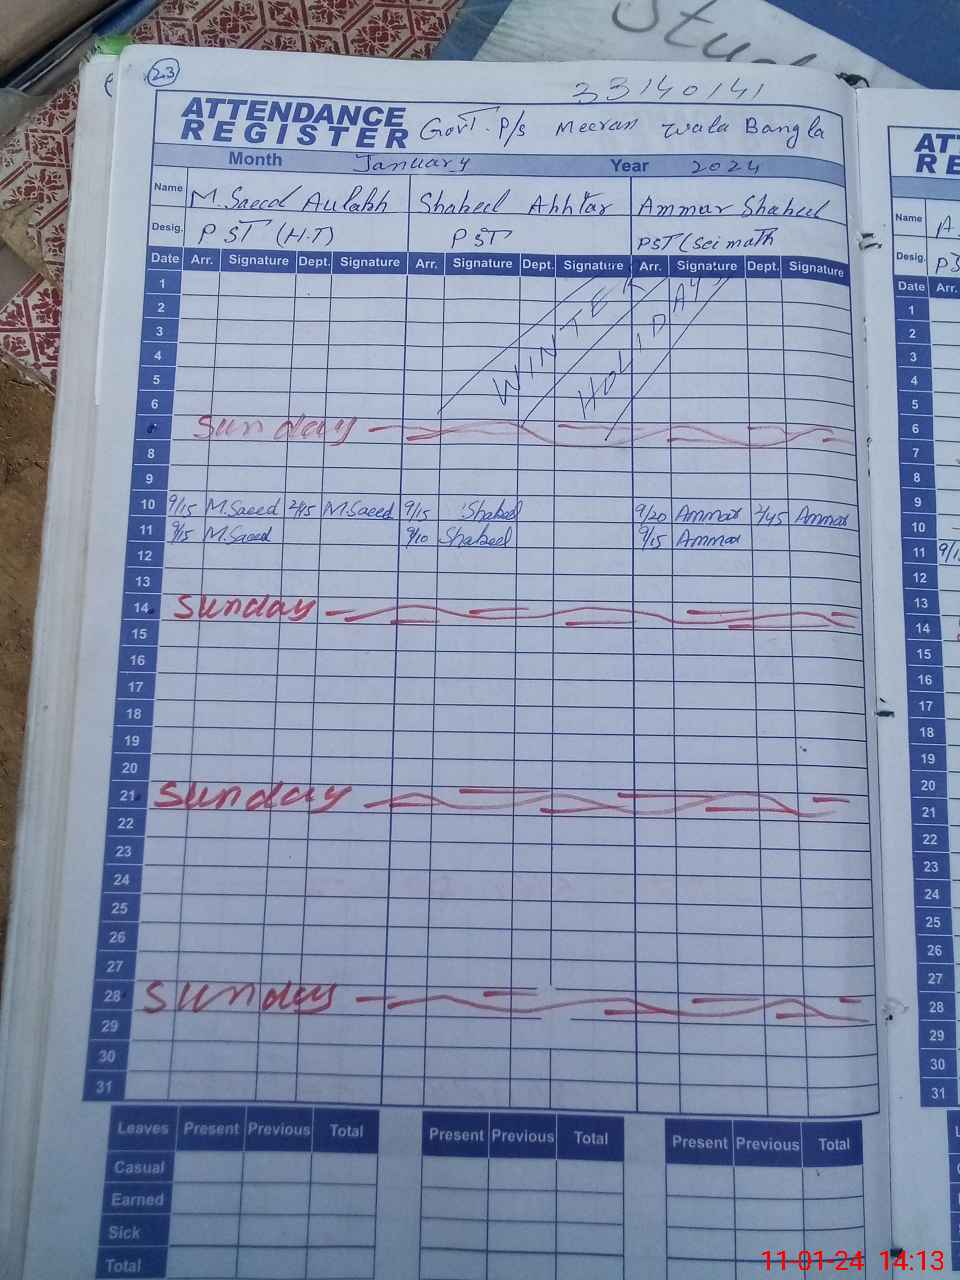 Study
23
33140141
ATTENDANCE REGISTER Govt. P/s Meeran wala Bangla
Month January Year 2024
Name M.Saeed Aulakh Shakeel Akhtar Ammar Shakeel
Desig. PST (H.T) PST PST (Sci math
Date Arr. Signature Dept. Signature Arr. Signature Dept. Signature Arr. Signature Dept. Signature
1
2
3
4
5
6
WINTER
HOLIDAYS
Sunday
8
9
10 9/15 M.Saeed 2/45 M.Saeed 9/15 Shakeel 9/20 Ammar 2/45 Ammar
11 9/15 M.Saeed 9/10 Shakeel 9/15 Ammar
12
13
14 Sunday
15
16
17
18
19
20
21 Sunday
22
23
24
25
26
27
28 Sunday
29
30
31
Leaves Present Previous Total Present Previous Total Present Previous Total
Casual
Earned
Sick
Total
ATT
RE
Name A.
Desig. PS
Date Arr.
1
2
3
4
5
6
7
8
9
10
11 9/1
12
13
14
15
16
17
18
19
20
21
22
23
24
25
26
27
28
29
30
31
11-01-24 14:13